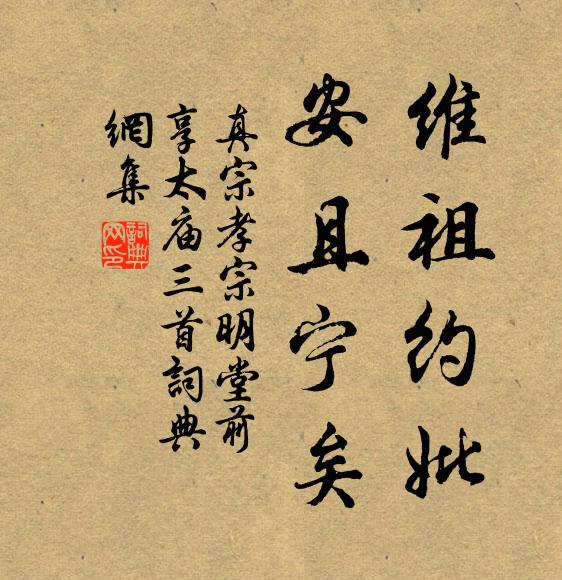 维祖约妣
安且宁矣
真宗孝宗明堂前
享太庙三首詞典
網集
詞典
网印